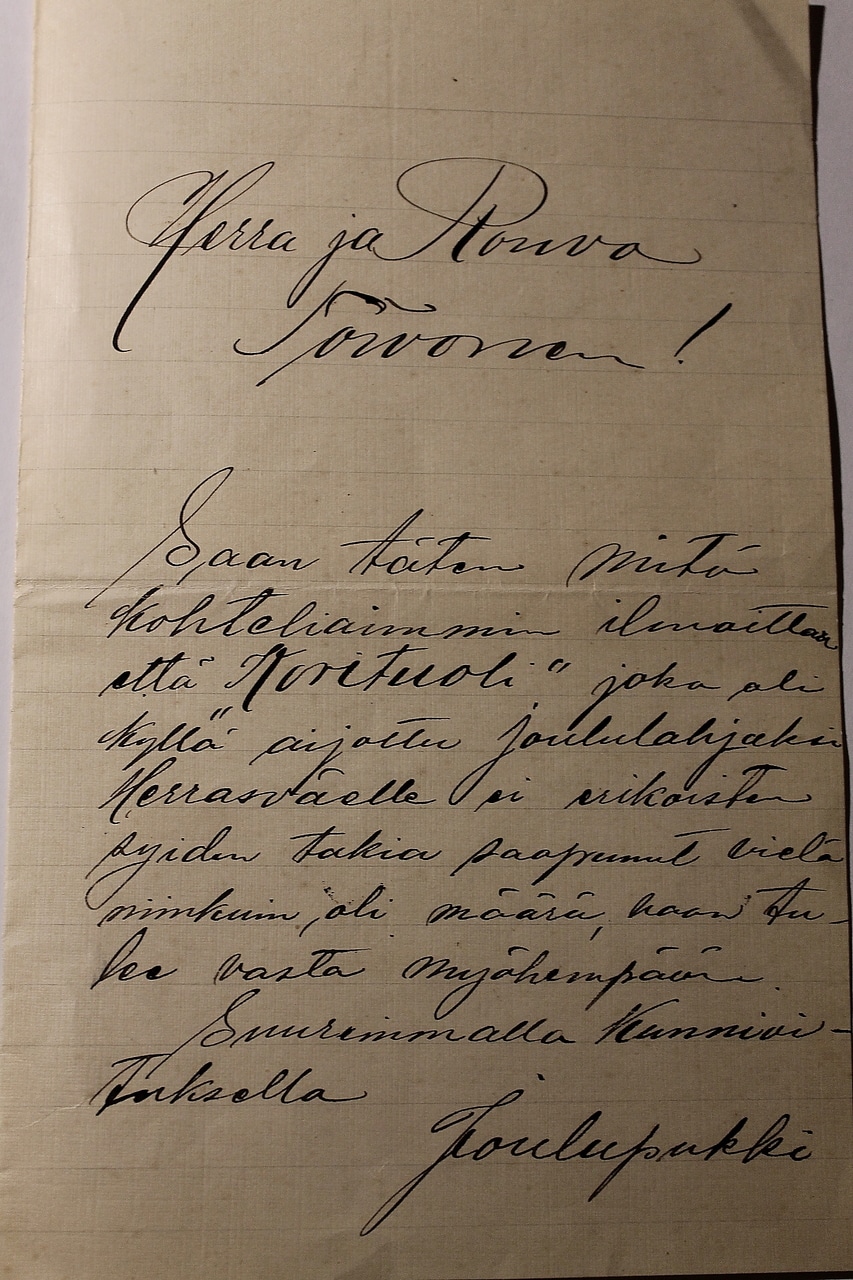 Herra ja Rouva
Toivonen!
Saan täten mitä
kohteliaimmin ilmoittaa
että "Korituoli" joka oli
kyllä aijottu joululahjaksi
Herrasväelle ei erikoisten
syiden takia saapunut vielä
niinkuin oli määrä, vaan tu-
lee vasta myöhempään.
Suurimmalla Kunnioi-
tuksella
Joulupukki